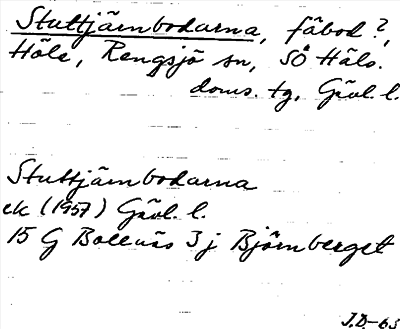 Stuttjärnbodarna, fäbod?,
Höle, Rengsjö sn, SÖ Häls.
doms. tg, Gävl. l.
Stuttjärnbodarna
ek (1957) Gävl. l.
15 G Bollnäs 3 j Björnberget
J.D-63